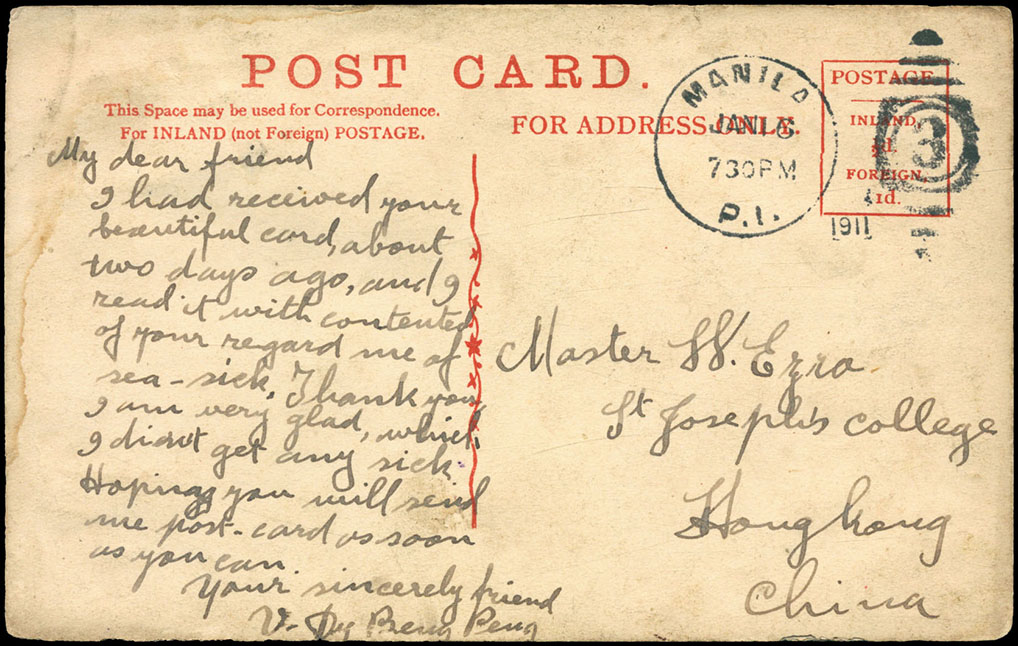 POST CARD.
This Space may be used for Correspondence.
For INLAND (not Foreign) POSTAGE.
FOR ADDRESS ONLY.
MANILA
JAN 16
730PM
P.I.
1911
3
POSTAGE
INLAND,
½d.
FOREIGN,
1d.
My dear friend
I had received your
beautiful card, about
two days ago, and I
read it with contented
of your regard me of
sea-sick, Thank you,
I am very glad, which
I didn't get any sick.
Hoping you will send
me post-card as soon
as you can.
Your sincerely friend
V. Dy Peng
Master W. Ezra
St Joseph's college
Hong kong
China